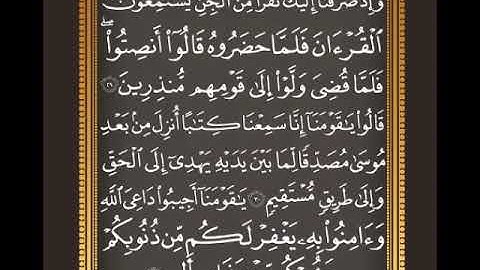 وَإِذْ صَرَفْنَآ إِلَيْكَ نَفَرًا مِّنَ ٱلْجِنِّ يَسْتَمِعُونَ
ٱلْقُرْءَانَ فَلَمَّا حَضَرُوهُ قَالُوٓا۟ أَنصِتُوا۟ ۖ
فَلَمَّا قُضِىَ وَلَّوْا۟ إِلَىٰ قَوْمِهِم مُّنذِرِينَ ٢٩
قَالُوا۟ يَٰقَوْمَنَآ إِنَّا سَمِعْنَا كِتَٰبًا أُنزِلَ مِنۢ بَعْدِ
مُوسَىٰ مُصَدِّقًا لِّمَا بَيْنَ يَدَيْهِ يَهْدِىٓ إِلَى ٱلْحَقِّ
وَإِلَىٰ طَرِيقٍ مُّسْتَقِيمٍ ٣٠ يَٰقَوْمَنَآ أَجِيبُوا۟ دَاعِىَ ٱللَّهِ
وَءَامِنُوا۟ بِهِۦ يَغْفِرْ لَكُم مِّن ذُنُوبِكُمْ